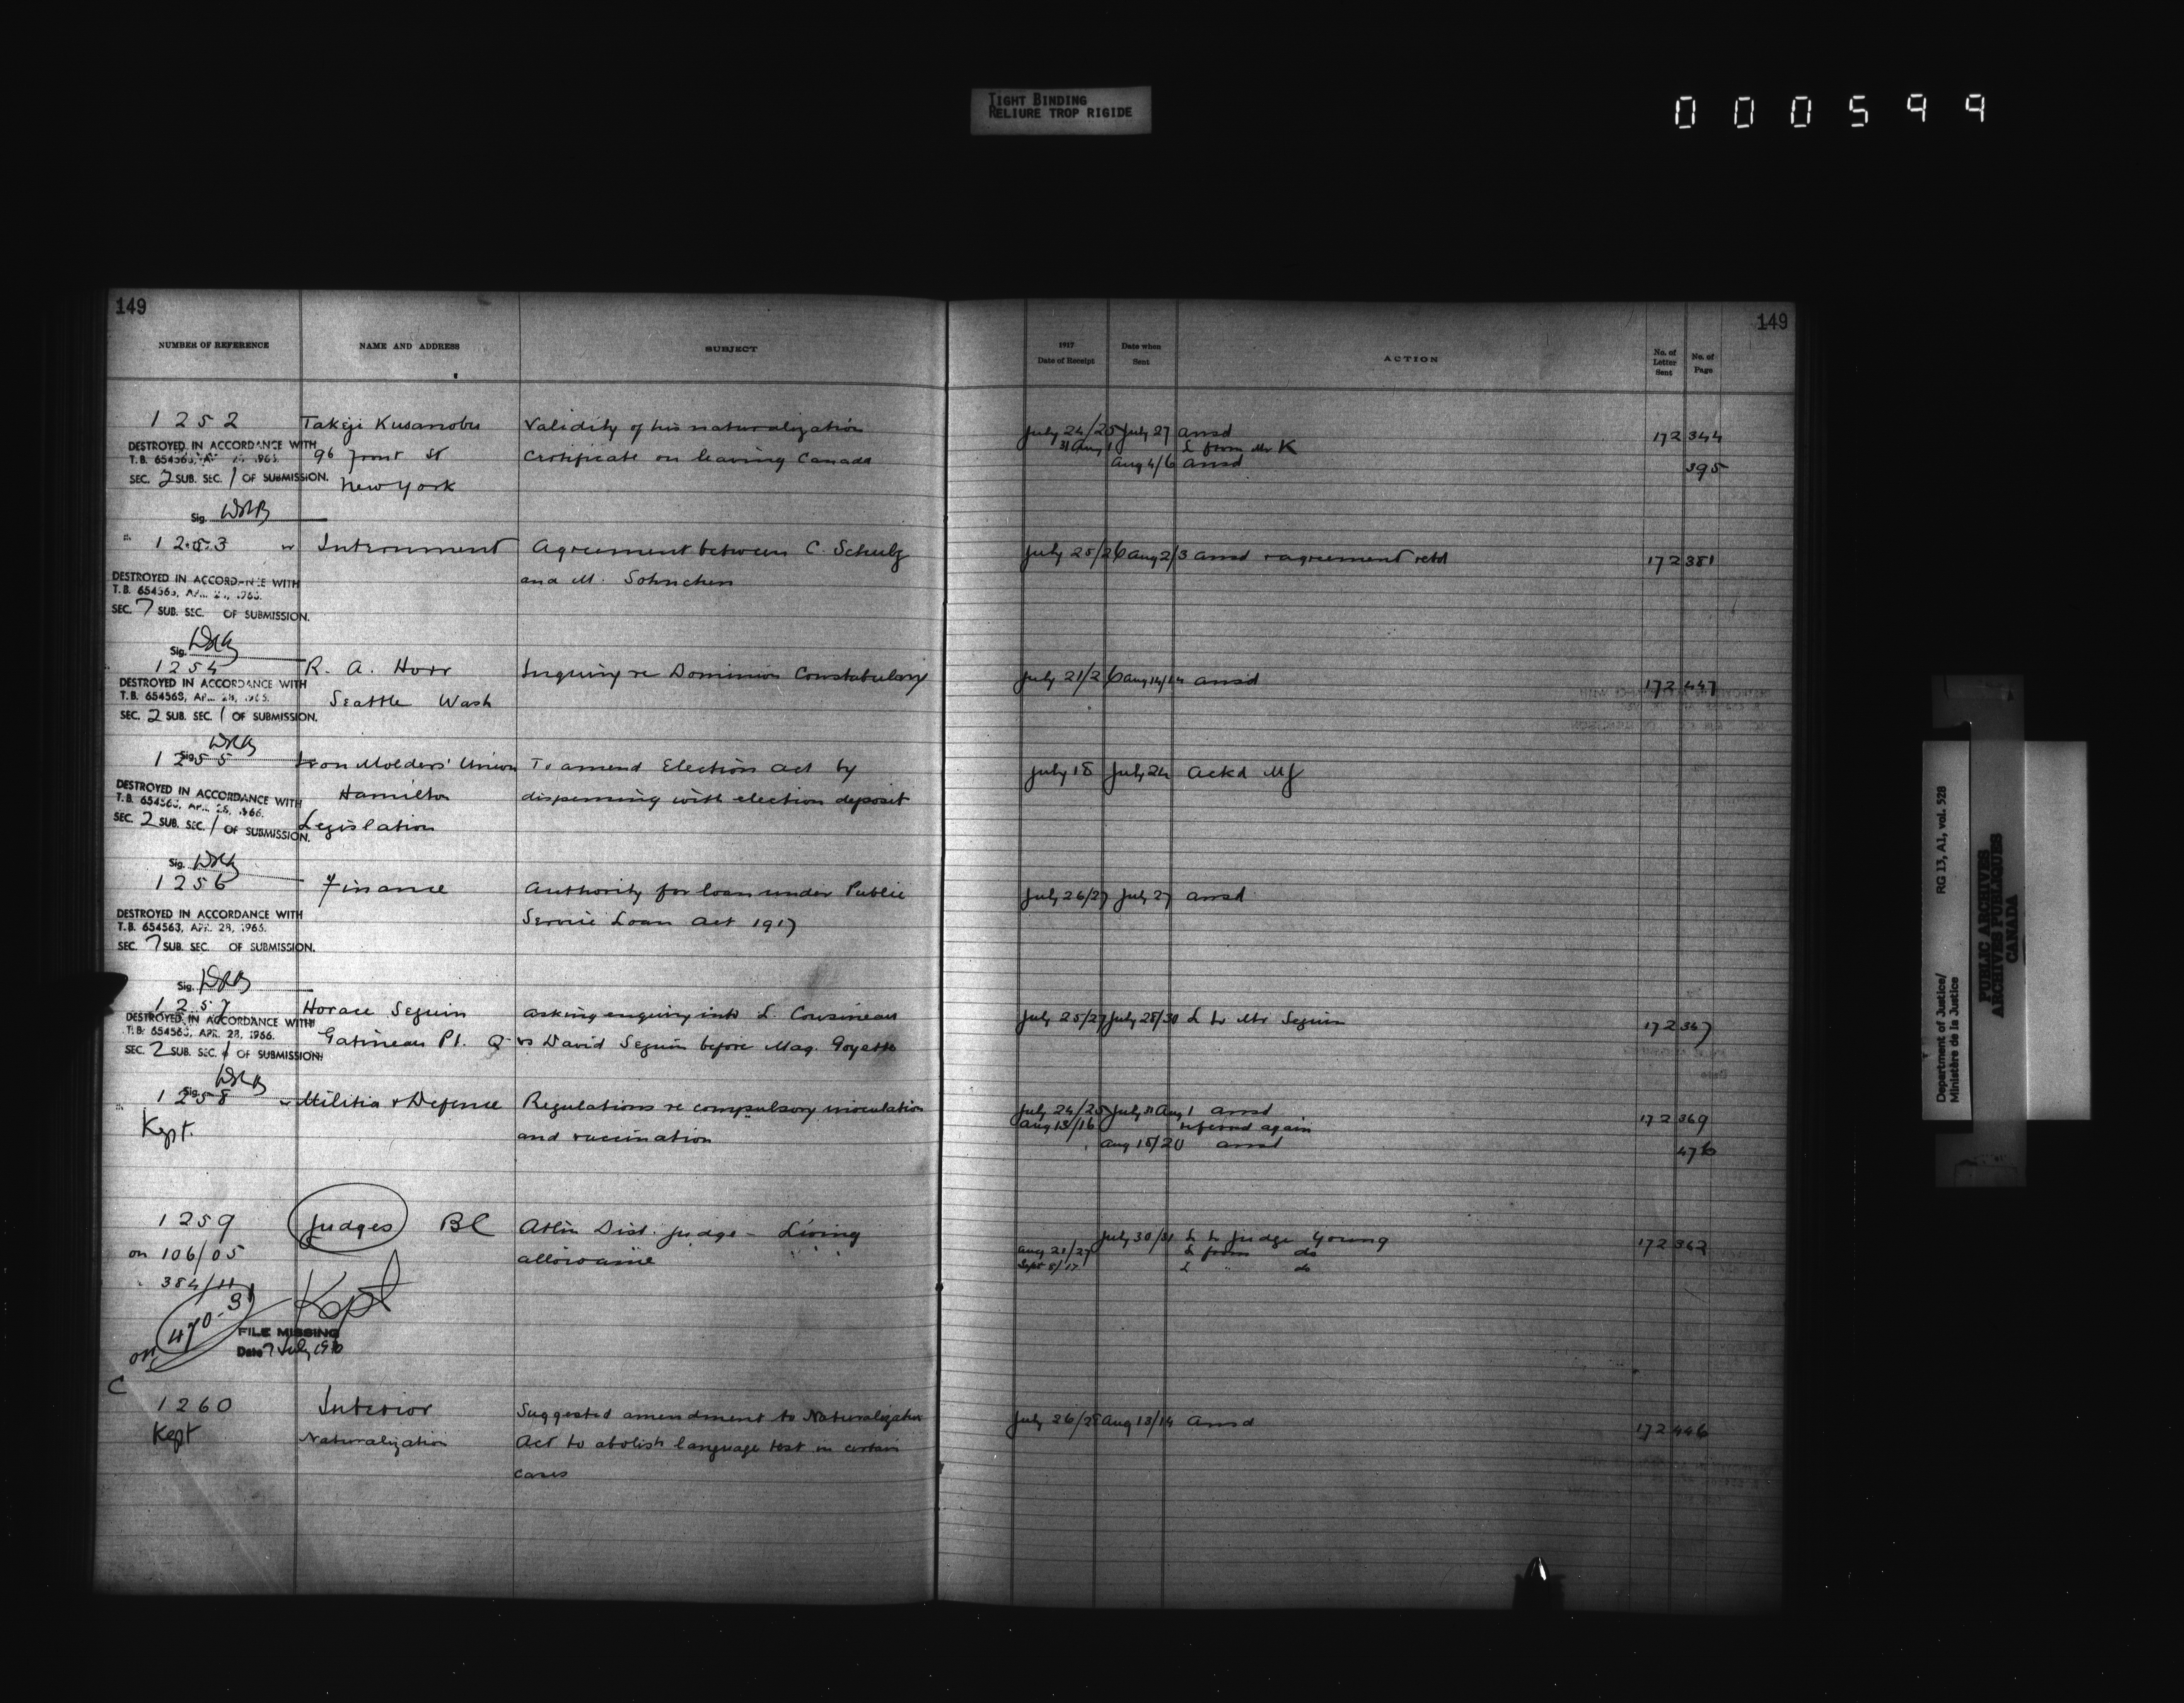 TIGHT BINDING
RELIURE TROP RIGIDE
000599
149
NUMBER OF REFERENCE NAME AND ADDRESS SUBJECT
1252 Takeji Kusanobu Validity of his naturalization
DESTROYED IN ACCORDANCE WITH
T.B. 654563, 96 Front St Certificate on leaving Canada
SEC. 2 SUB. SEC. 1 OF SUBMISSION. New York
Sig.
1253 Internment Agreement between C. Schulz
and M. Sohnchen
DESTROYED IN ACCORDANCE WITH
T.B. 654563,
SEC. 7 SUB. SEC. OF SUBMISSION.
Sig.
1254 R. A. Horr Inquiry re Dominion Constabulary
DESTROYED IN ACCORDANCE WITH
T.B. 654563, Seattle Wash
SEC. 2 SUB. SEC. 1 OF SUBMISSION.
Sig.
1255 Iron Molders' Union To amend Election Act by
DESTROYED IN ACCORDANCE WITH Hamilton dispensing with election deposit
T.B. 654563, APR. 28, 1966.
SEC. 2 SUB. SEC. 1 OF SUBMISSION. Legislation
Sig.
1256 Finance Authority for loan under Public
Service Loan Act 1917
DESTROYED IN ACCORDANCE WITH
T.B. 654563, APR. 28, 1966.
SEC. 7 SUB. SEC. OF SUBMISSION.
Sig.
1257 Horace Seguin Asking enquiry into L. Cousineau
DESTROYED IN ACCORDANCE WITH
T.B. 654563, APR. 28, 1966. Gatineau Pt. Q vs David Seguin before Mag. Goyette
SEC. 2 SUB. SEC. 1 OF SUBMISSION
Sig.
1258 Militia & Defence Regulations re compulsory inoculation
Kept. and vaccination
1259 Judges BC Atlin Dist. Judge - Living
on 106/05 allowance
" 384/11
Kept
on 470-31
FILE MISSING
Date 7 July 1970
C
1260 Interior Suggested amendment to Naturalization
Kept Naturalization Act to abolish language test in certain
cases
149
1917
Date of Receipt Date when Sent ACTION No. of Letter Sent No. of Page
July 24/25 July 27 ansd 172 344
31 Aug 1 L from Mr K
Aug 4/6 ansd 395
July 25/26 Aug 2/3 ansd & agreement retd 172 381
July 21/26 Aug 14/14 ansd 172 447
July 18 July 24 Ackd
July 26/27 July 27 ansd
July 25/27 July 28/30 L to Mr Seguin 172 347
July 24/25 July 31 Aug 1 ansd 172 369
Aug 13/16 referred again
Aug 18/20 ansd 476
July 30/31 L to Judge Young 172 362
Aug 21/27 L from do
Sept 8/17 L " do
July 26/28 Aug 13/14 ansd 172 446
Department of Justice/ RG 13, A1, vol. 528
Ministère de la Justice
PUBLIC ARCHIVES
ARCHIVES PUBLIQUES
CANADA